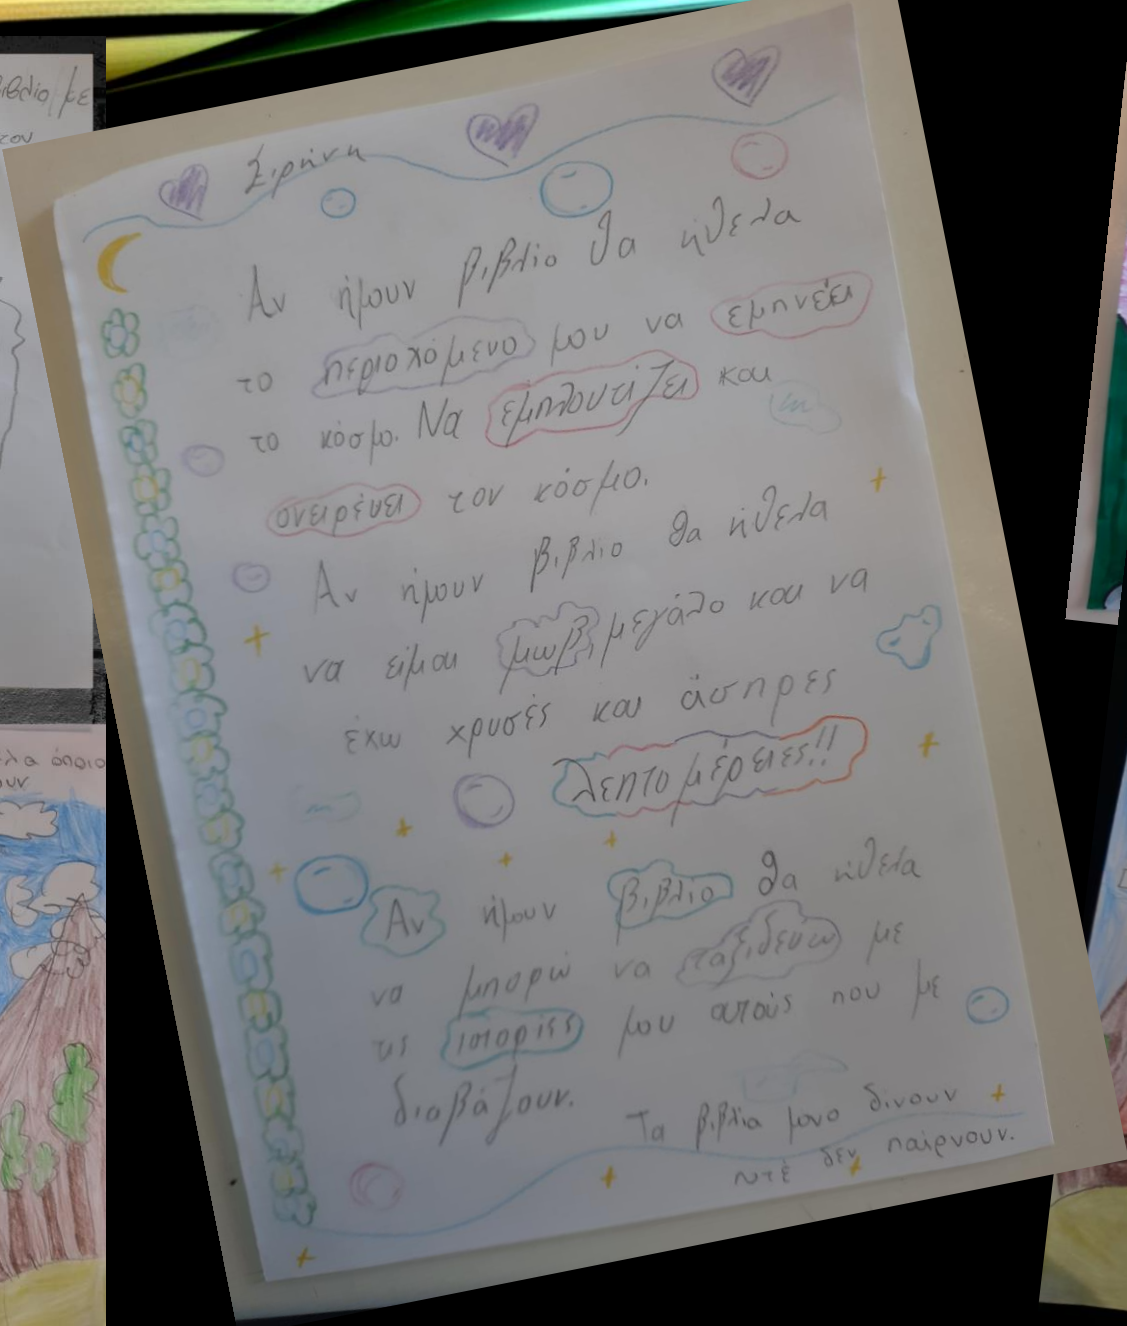 βιβλίο με
του
Ειρήνη
Αν ήμουν βιβλίο θα ήθελα
το περιοχόμενο μου να εμπνέει
το κόσμο. Να εμπλουτίζει και
ονειρεύει τον κόσμο.
Αν ήμουν βιβλίο θα ήθελα
να είμαι μωβ, μεγάλο και να
έχω χρυσές και άσπρες
λεπτομέρειες!!
Αν ήμουν βιβλίο θα ήθελα
να μπορώ να ταξιδεύω με
τις ιστορίες μου αυτούς που με
διαβάζουν.
Τα βιβλία μονο δίνουν
ποτέ δεν παίρνουν.